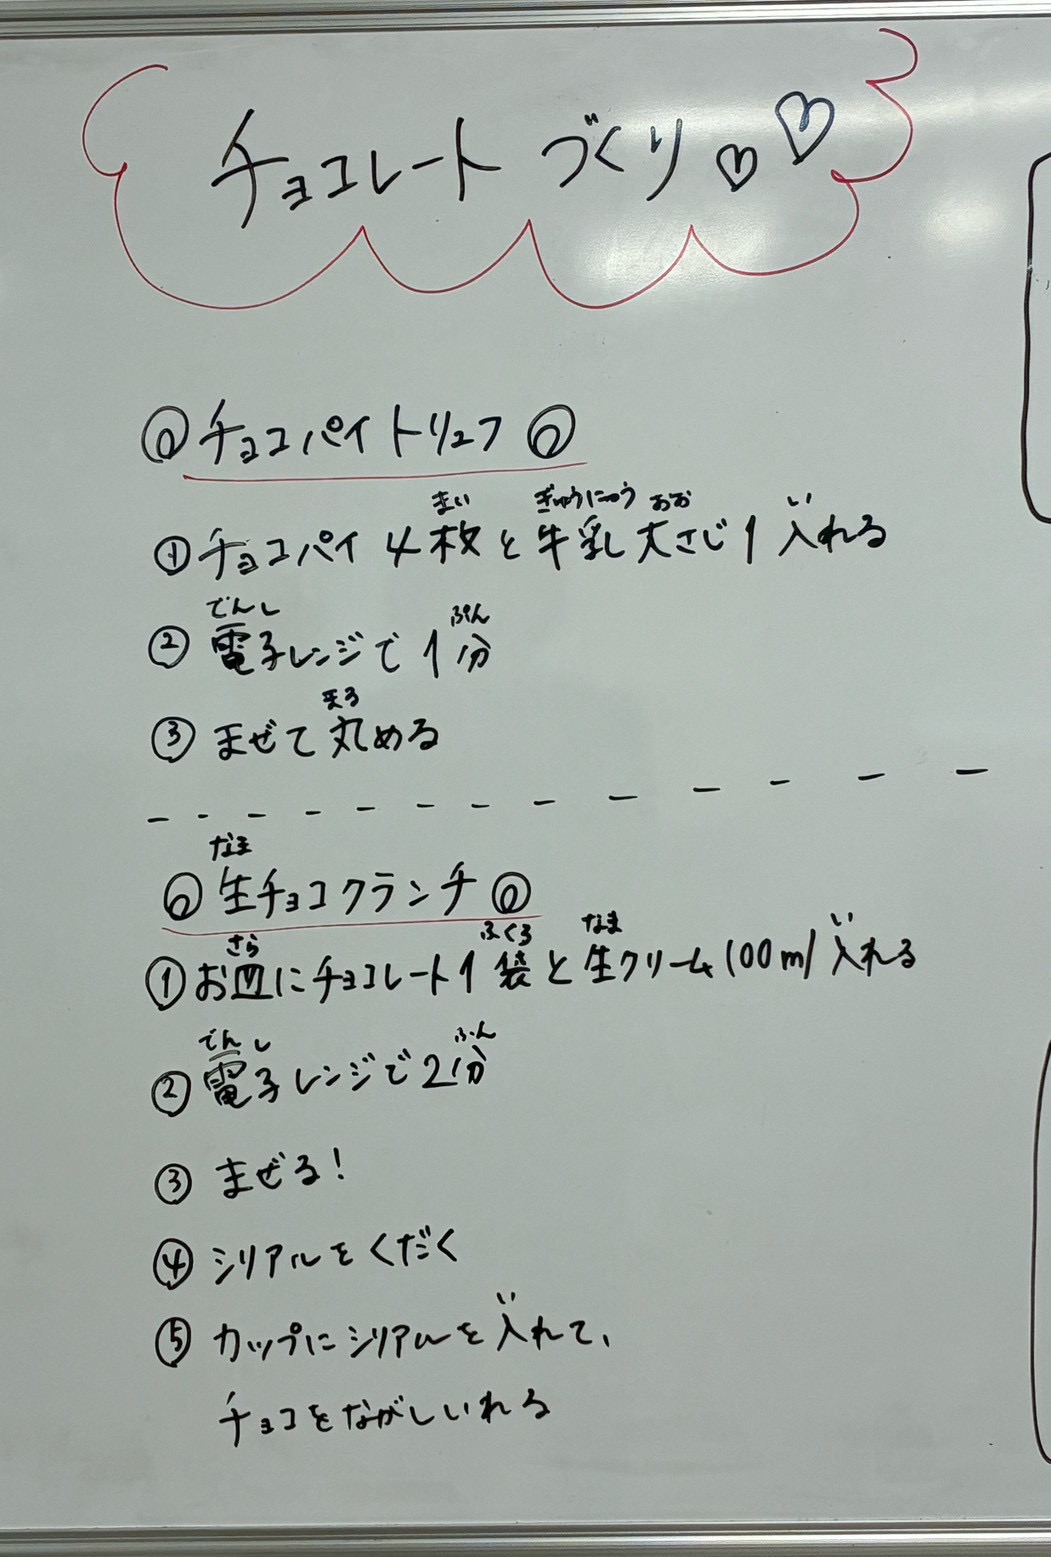 チョコレートづくり♡♡
チョコパイトリュフ
まい ぎゅうにゅう おお い
①チョコパイ4枚と牛乳大さじ1入れる
でんし ぷん
②電子レンジで1分
まる
③まぜて丸める
なま
生チョコクランチ
さら ふくろ なま い
①お皿にチョコレート1袋と生クリーム100ml入れる
でんし ふん
②電子レンジで2分
③まぜる!
④シリアルをくだく
い
⑤カップにシリアルを入れて、
チョコをながしいれる